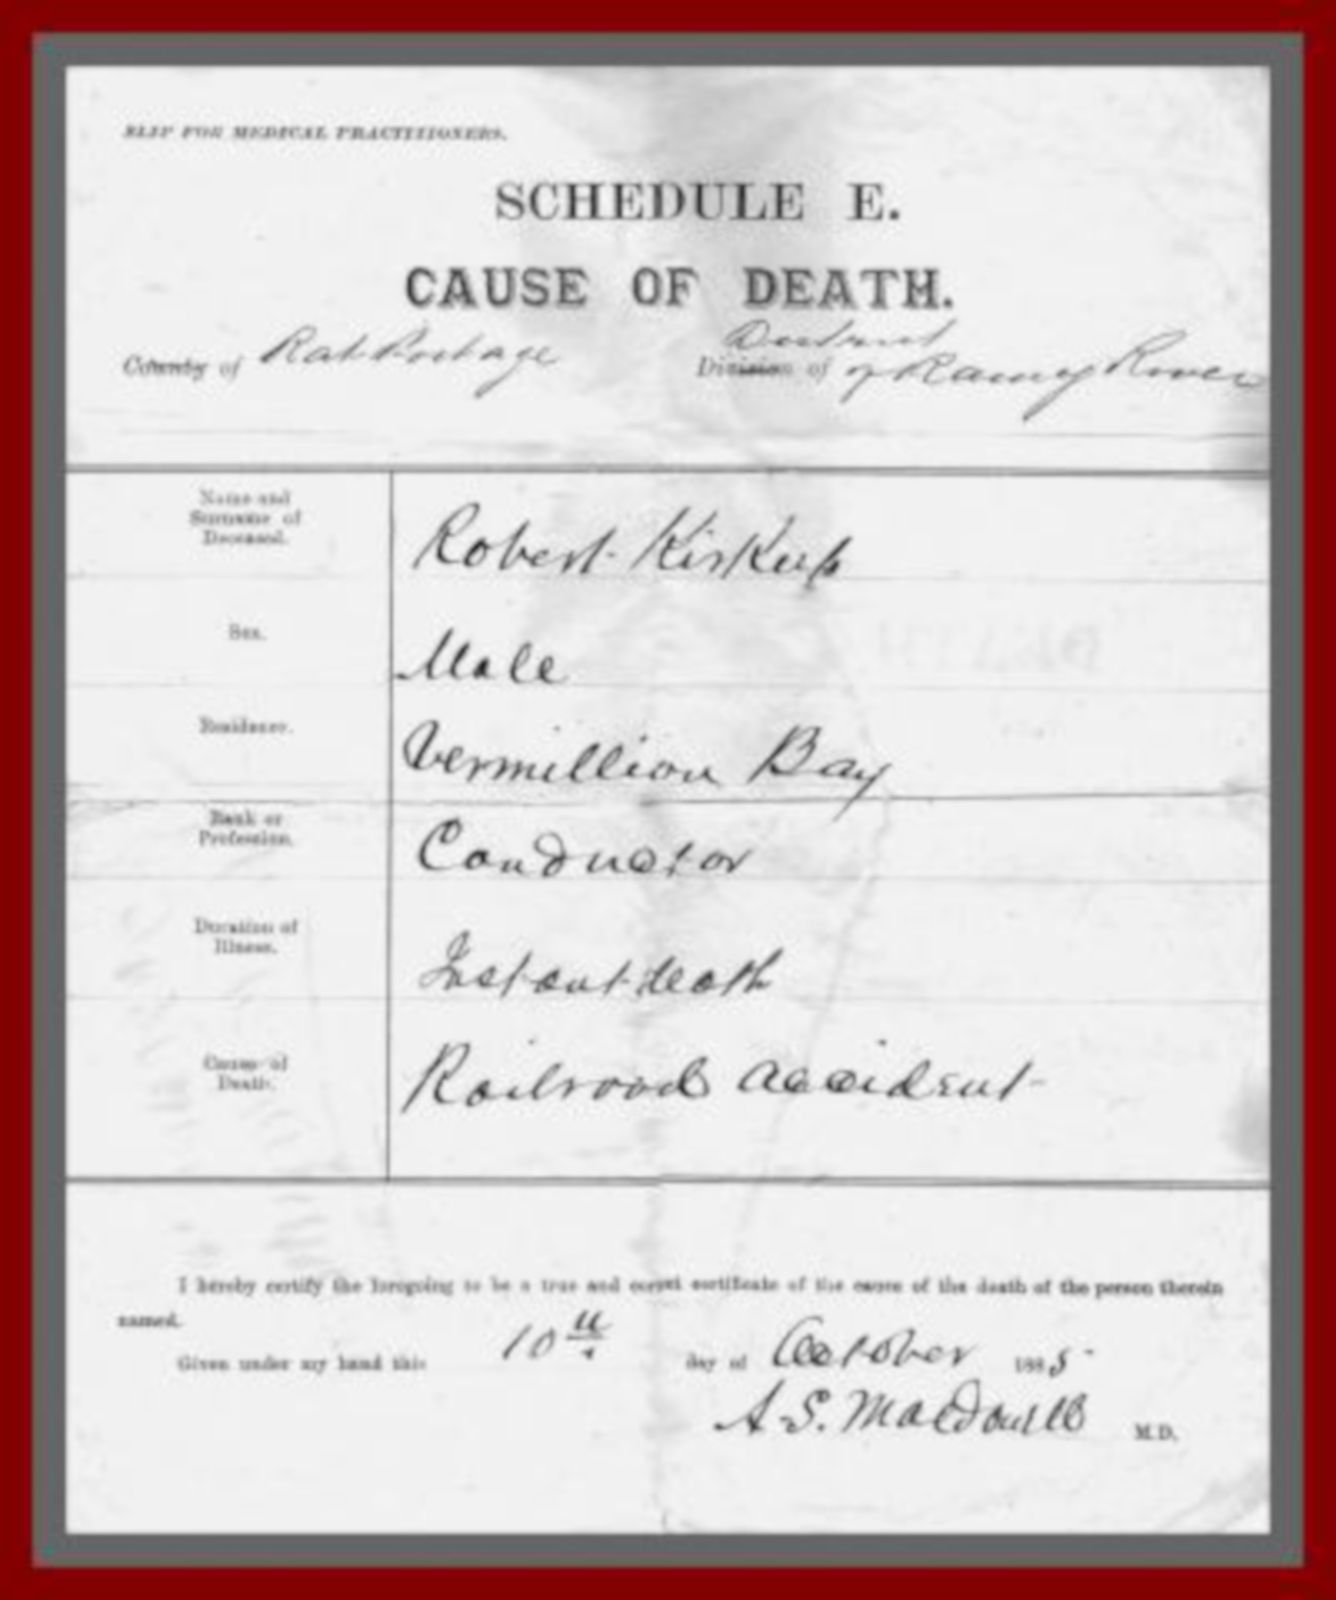 SLIP FOR MEDICAL PRACTITIONERS.
SCHEDULE E.
CAUSE OF DEATH.
County of Rat Portage
District
Division of of Rainy River
Name and
Surname of
Deceased.
Robert Kirkup
Sex.
Male
Residence.
Vermillion Bay
Rank or
Profession.
Conductor
Duration of
Illness.
Instant death
Cause of
Death.
Railroad accident
I hereby certify the foregoing to be a true and correct certificate of the cause of the death of the person therein
named.
Given under my hand this 10th day of October 1885
A. S. Macdonell M.D.